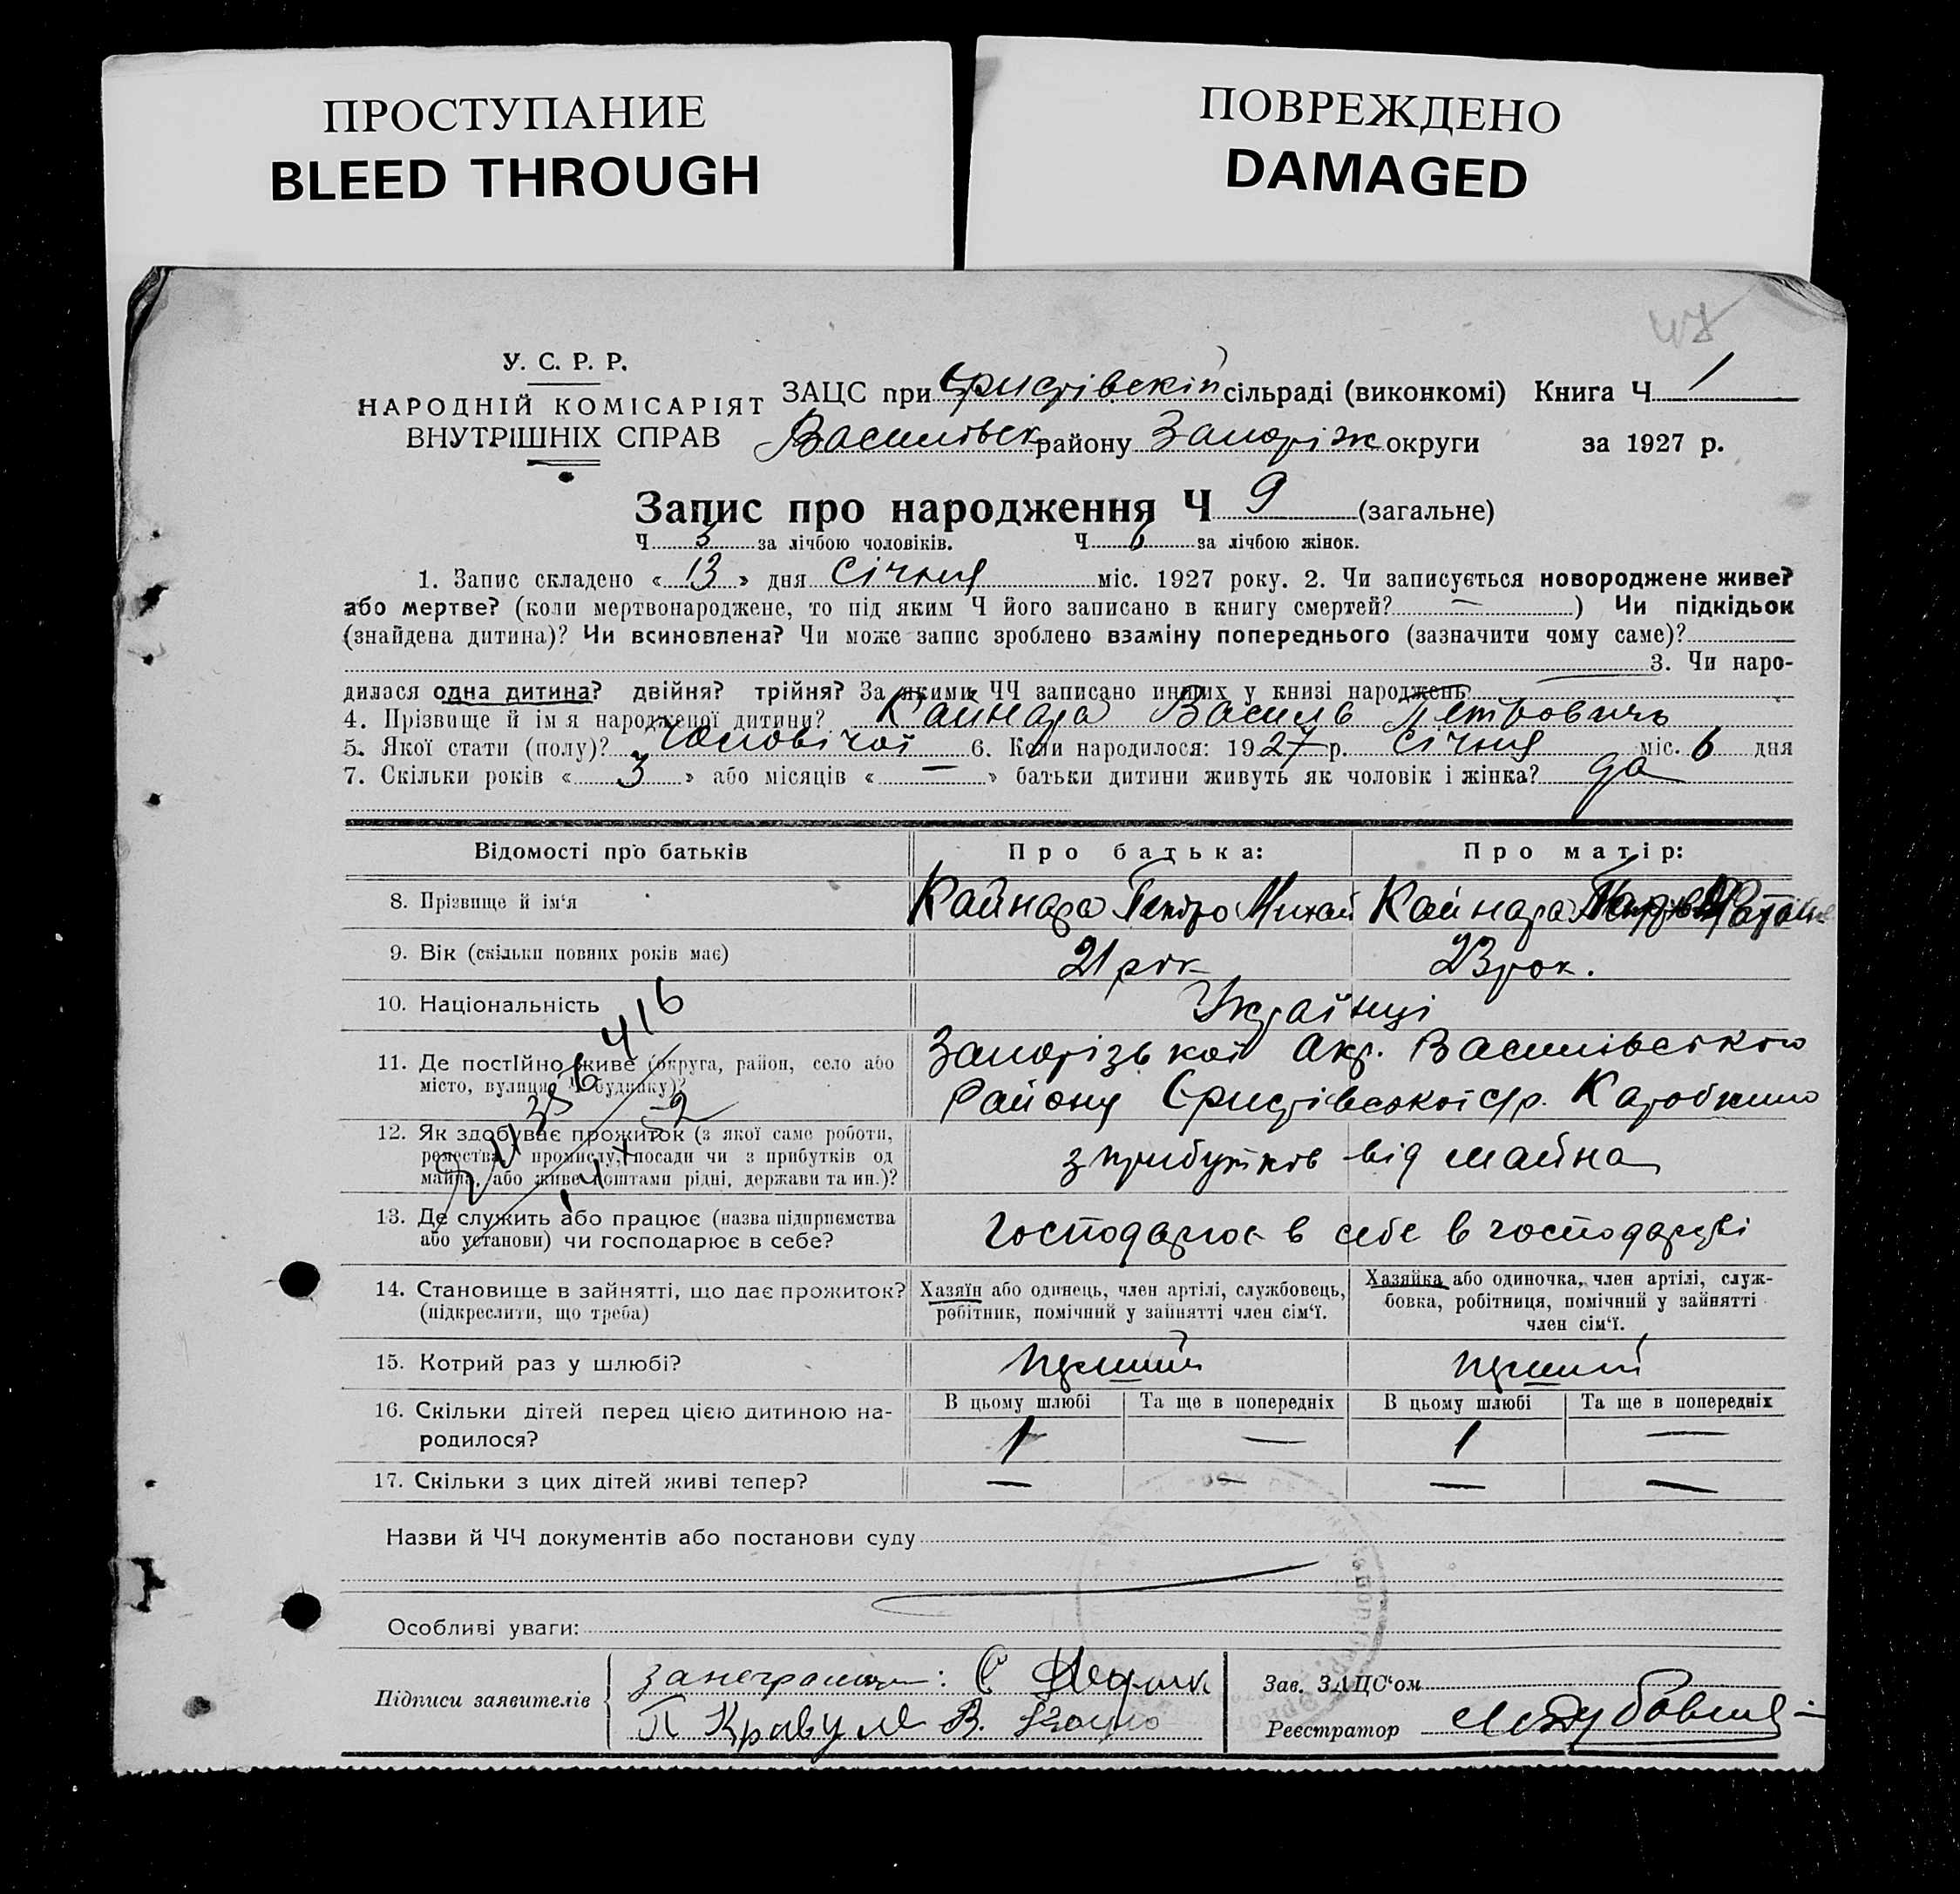 ПРОСТУПАНИЕ
BLEED THROUGH
ПОВРЕЖДЕНО
DAMAGED
У. С. Р. Р.
НАРОДНІЙ КОМІСАРІЯТ
ВНУТРІШНІХ СПРАВ
ЗАЦС при Єристівскій сільраді (виконкомі) Книга Ч 1
Василівск району Запоріж округи за 1927 р.
Запис про народження Ч 9 (загальне)
Ч 3 за лічбою чоловіків. Ч 6 за лічбою жінок.
1. Запис складено « 13 » дня Січня міс. 1927 року. 2. Чи записується новороджене живе?
або мертве? (коли мертвонароджене, то під яким Ч його записано в книгу смертей? — ) Чи підкідьок
(знайдена дитина)? Чи всиновлена? Чи може запис зроблено взаміну попереднього (зазначити чому саме)?
3. Чи наро-
дилася одна дитина? двійня? трійня? За якими ЧЧ записано инших у книзі народжень?
4. Прізвище й ім я народженої дитини? Кайнара Василь Петровичь
5. Якої стати (полу)? Чоловічої 6. Коли народилося: 1927 р. Січня міс. 6 дня
7. Скільки років « 3 » або місяців « — » батьки дитини живуть як чоловік і жінка? да
Відомості про батьків Про батька: Про матір:
8. Прізвище й ім'я Кайнара Петро Михай Кайнара
9. Вік (скільки повних років має) 21 рік 23 рок.
10. Національність Українці
416
11. Де постійно живе (округа, район, село або Запорізької Окр. Василівського
місто, вулиця, Ч будинку)? Району Єристівської с/р.
12. Як здобуває прожиток (з якої саме роботи,
ремества, промислу, посади чи з прибутків од з прибутков від майна
майна, або живе коштами рідні, держави та ин.)?
13. Де служить або працює (назва підприємства Господарює в себе в господарстві
або установи) чи господарює в себе?
14. Становище в зайнятті, що дає прожиток? Хазяїн або одинець, член артілі, службовець, Хазяйка або одиночка, член артілі, служ-
(підкреслити, що треба) робітник, помічний у зайнятті член сім'ї. бовка, робітниця, помічний у зайнятті
член сім'ї.
15. Котрий раз у шлюбі? перший перший
16. Скільки дітей перед цією дитиною на- В цьому шлюбі Та ще в попередніх В цьому шлюбі Та ще в попередніх
родилося? 1 — 1 —
17. Скільки з цих дітей живі тепер? — — — —
Назви й ЧЧ документів або постанови суду
Особливі уваги:
Підписи заявителів
Зав. ЗАЦС'ом
Реєстратор